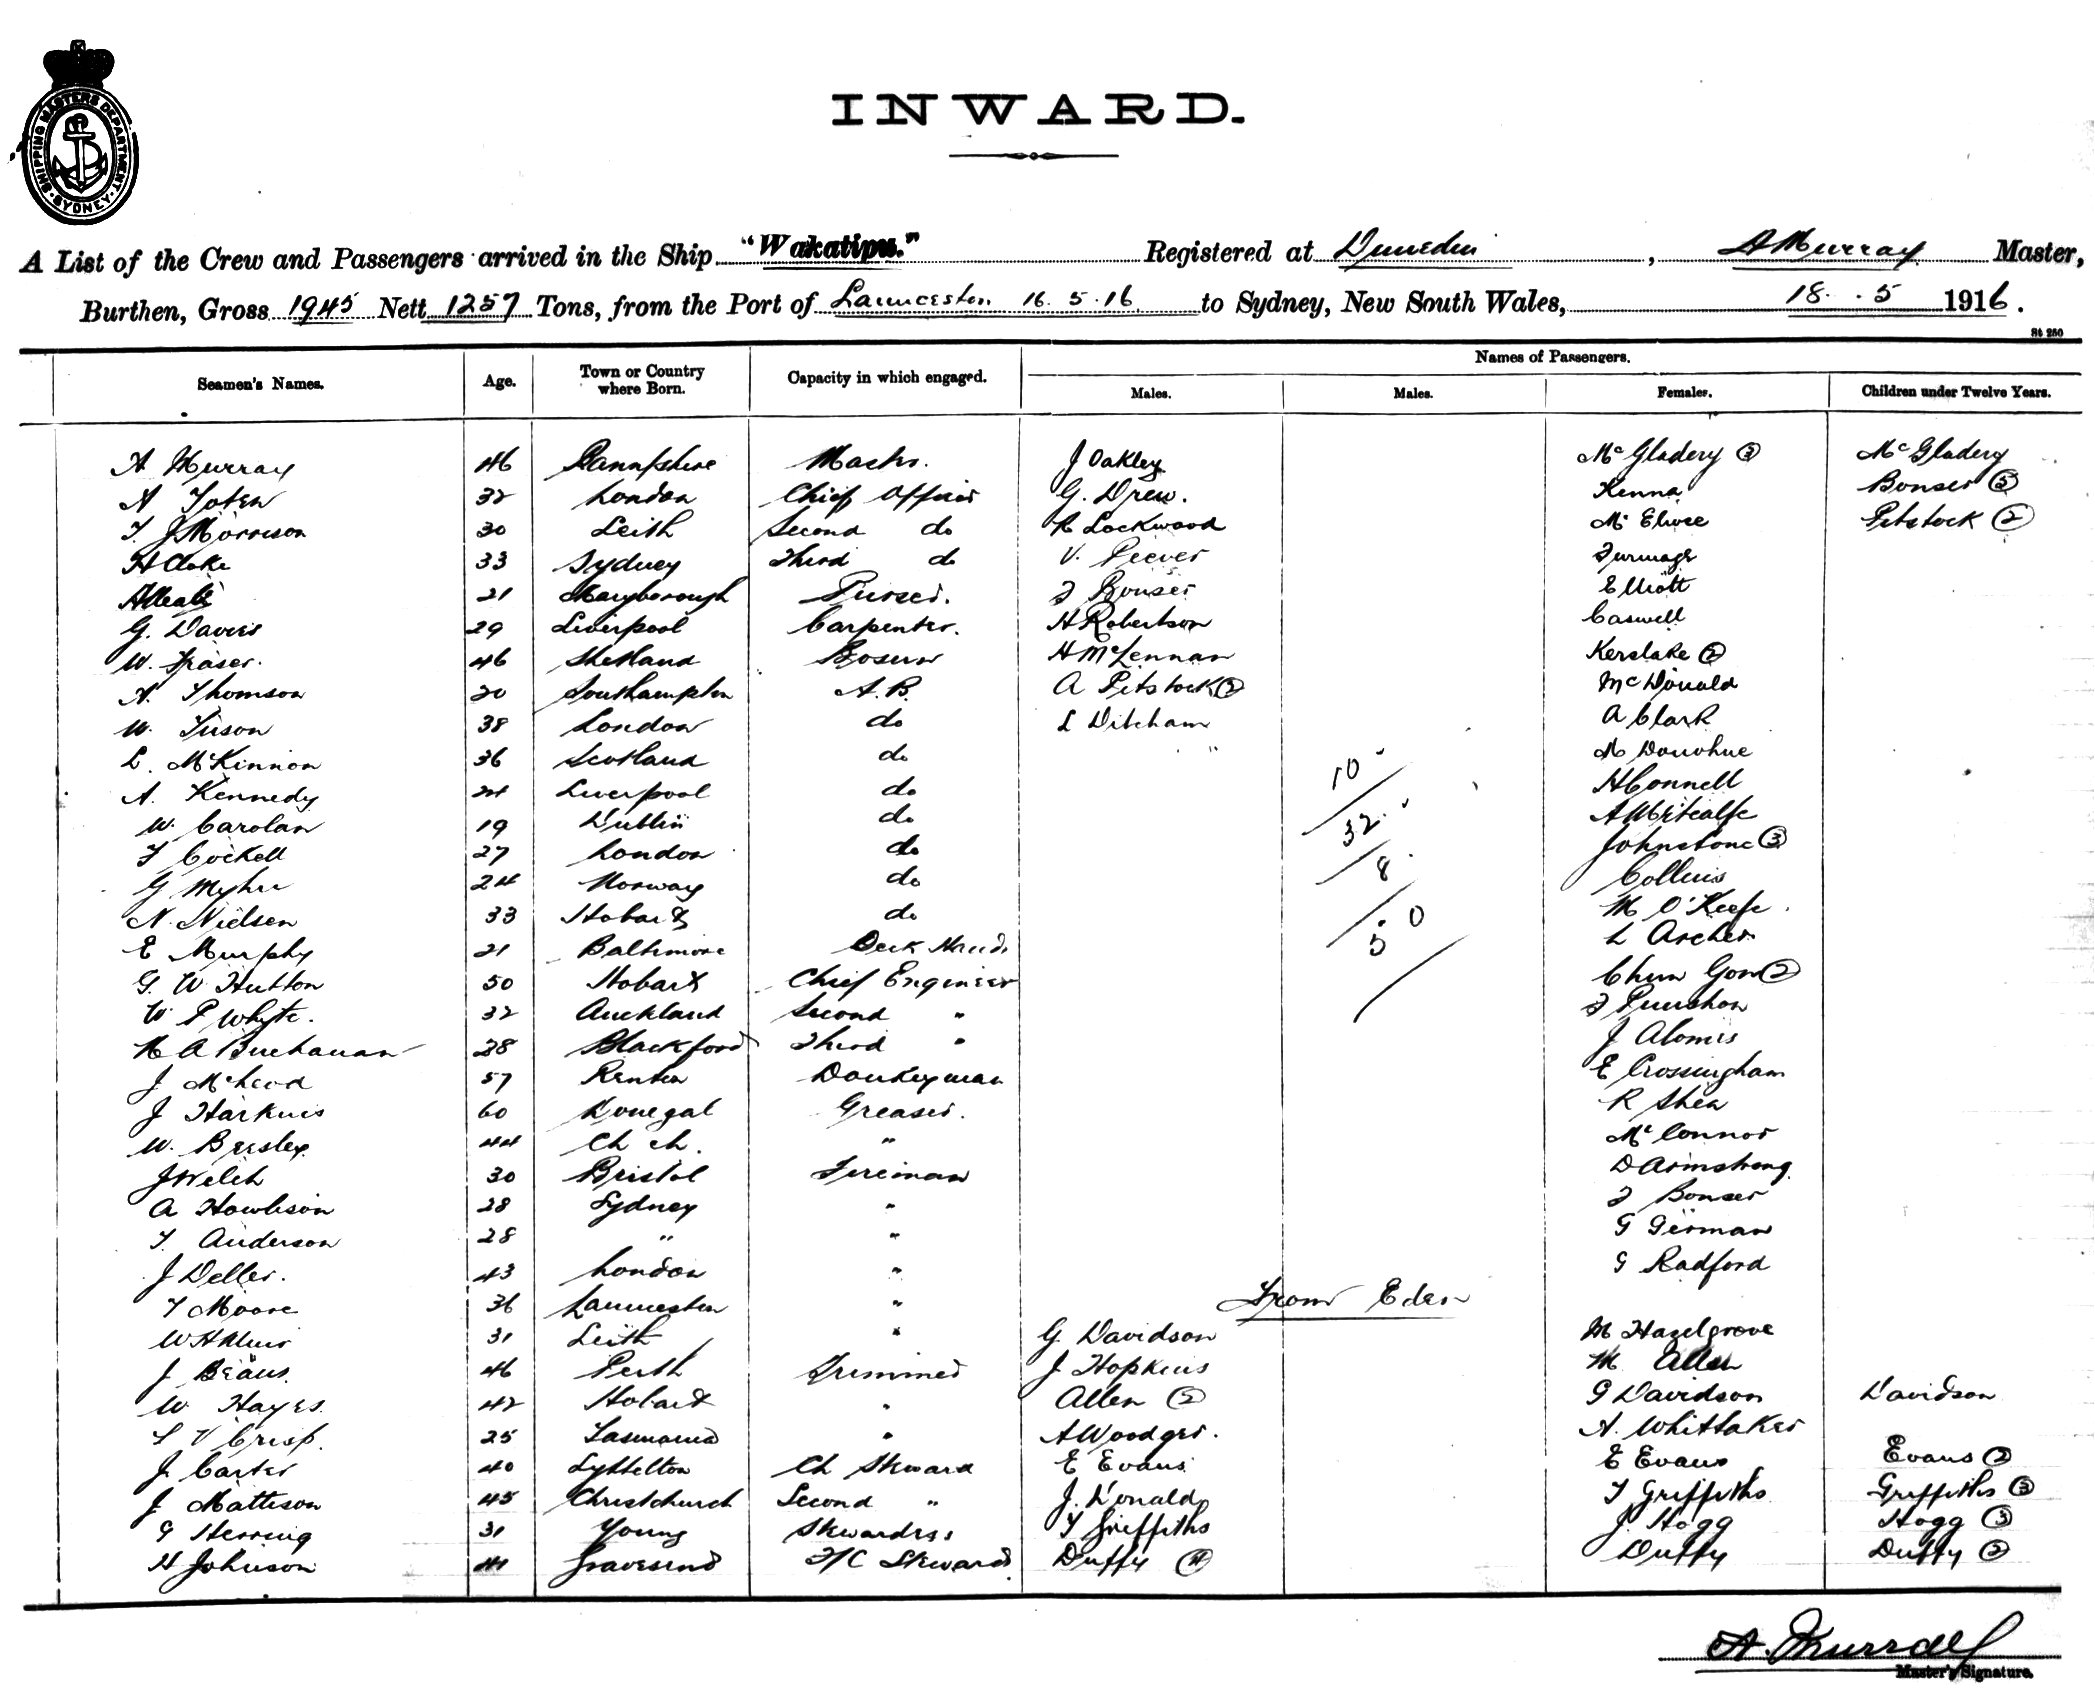 INWARD.
SHIPPING MASTERS DEPARTMENT SYDNEY
A List of the Crew and Passengers arrived in the Ship "Wakatipu." Registered at Dunedin, A Murray Master,
Burthen, Gross 1945 Nett 1257 Tons, from the Port of Launceston 16.5.16 to Sydney, New South Wales, 18.5 1916.
St 250
Names of Passengers.
Seamen's Names. Age. Town or Country where Born. Capacity in which engaged. Males. Males. Females. Children under Twelve Years.
A Murray 46 Master. J Oakley McGladery ③ McGladery
A 32 London Chief Officer G. Drew. Kenna Bonser ⑤
T. J Morrison 30 Leith Second do R Lockwood Pitstock ②
H Clake 33 Sydney Third do V. Peever
21 Maryborough Purser. J Bonser Elliott
G. Davies 29 Liverpool Carpenter. H Robertson Caswell
W. Fraser. 46 Shetland Bosun H McLennan Kerslake ②
A. Thomson 20 Southampton A.B. A Pitstock ② McDonald
W. Tuson 38 London do L Ditcham A Clark
L. McKinnon 36 Scotland do M Donohue
A. Kennedy 24 Liverpool do 10 H Connell
W. Carolan 19 Dublin do 32 A Metcalfe
T Cockell 27 London do Johnstone ③
G Myhre 24 Norway do 8 Collins
N. Nielsen 33 Hobart do 50 M O'Keefe.
E Murphy 21 Baltimore Deck Hand. L Archer
G. W Hutton 50 Hobart Chief Engineer Chun Gon ②
W P Whyte. 32 Auckland Second " J Punshon
A Buchanan 28 Blackford Third " J
J McLeod 57 Renton Donkeyman E Crossingham
J Harkins 60 Donegal Greaser. R Shea
W. 44 Ch ch. " McConnor
J Welch 30 Bristol Fireman D Armstrong
A Howieson 28 Sydney " J Bonser
T. Anderson 28 " " G German
J Deller. 43 London " G Radford
T Moore 36 Launceston " From Eden
W H Muir 31 Leith " G. Davidson M Hazelgrove
J 46 Perth Trimmer J Hopkins M Allen
W Hayes. 42 Hobart " Allen ② G Davidson Davidson
V Crisp. 25 Tasmania " A Woodger. A. Whittaker
J. Carter 40 Lyttelton Ch Steward E Evans E Evans Evans ②
J. Mattison 45 Christchurch Second " J. Donald T Griffiths Griffiths ③
G Herring 31 Young Stewardess T Griffiths J. Hogg Hogg ③
H Johnson 41 Gravesend F/C Steward. Duffy ④ Duffy Duffy ②
A. Murray
Master's Signature.